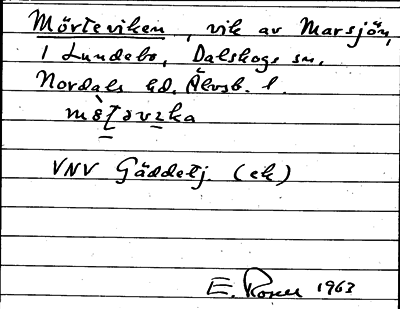 Mörteviken, vik av Marsjön,
1 Lundebo, Dalskogs sn,
Nordals hd. Älvsb. l.
VNV Gäddetj. (ek)
E. 1963